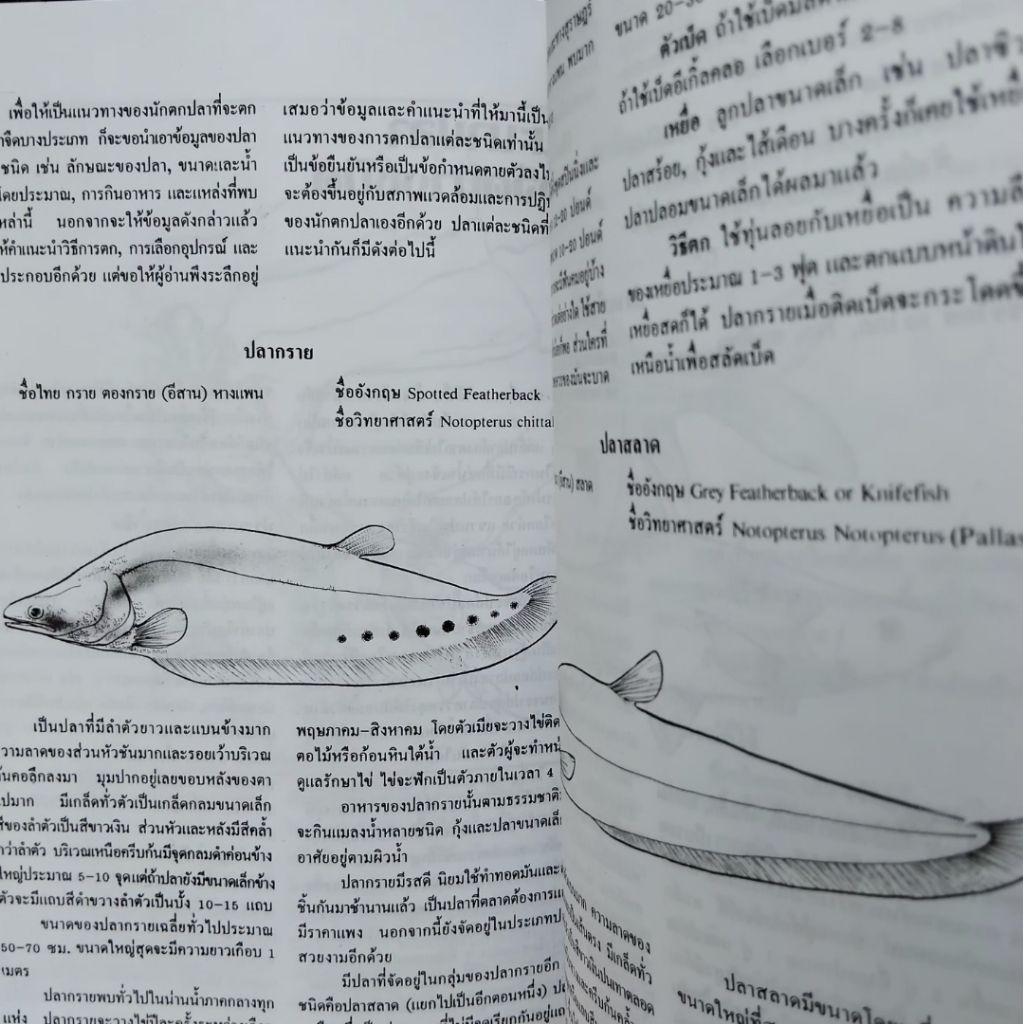 เพื่อให้เป็นแนวทางของนักตกปลาที่จะตก
จืดบางประเภท ก็จะขอนำเอาข้อมูลของปลา
ชนิด เช่น ลักษณะของปลา, ขนาดและน้ำ
โดยประมาณ, การกินอาหาร และแหล่งที่พบ
เหล่านี้ นอกจากจะให้ข้อมูลดังกล่าวแล้ว
ให้คำแนะนำวิธีการตก, การเลือกอุปกรณ์ และ
ประกอบอีกด้วย แต่ขอให้ผู้อ่านพึงระลึกอยู่
เสมอว่าข้อมูลและคำแนะนำที่ให้มานี้เป็น
แนวทางของการตกปลาแต่ละชนิดเท่านั้น
เป็นข้อยืนยันหรือเป็นข้อกำหนดตายตัวลงไป
จะต้องขึ้นอยู่กับสภาพแวดล้อมและการปฏิ
ของนักตกปลาเองอีกด้วย ปลาแต่ละชนิดที่
แนะนำกันก็มีดังต่อไปนี้
ปลากราย
ชื่อไทย กราย ตองกราย (อีสาน) หางแพน
ชื่ออังกฤษ Spotted Featherback
ชื่อวิทยาศาสตร์ Notopterus chittal
เป็นปลาที่มีลำตัวยาวและแบนข้างมาก
ความลาดของส่วนหัวชันมากและรอยเว้าบริเวณ
ต้นคอลึกลงมา มุมปากอยู่เลยขอบหลังของตา
ไปมาก มีเกล็ดทั่วตัวเป็นเกล็ดกลมขนาดเล็ก
สีของลำตัวเป็นสีขาวเงิน ส่วนหัวและหลังมีสีคล้ำ
กว่าลำตัว บริเวณเหนือครีบก้นมีจุดกลมดำค่อนข้าง
ใหญ่ประมาณ 5-10 จุดแต่ถ้าปลายังมีขนาดเล็กข้าง
ตัวจะมีแถบสีดำขวางลำตัวเป็นบั้ง 10-15 แถบ
ขนาดของปลากรายเฉลี่ยทั่วไปประมาณ
50-70 ซม. ขนาดใหญ่สุดจะมีความยาวเกือบ 1
เมตร
ปลากรายพบทั่วไปในน่านน้ำภาคกลางทุก
แห่ง ปลากรายจะวางไข่ปีละครั้งระหว่างเดือน
พฤษภาคม-สิงหาคม โดยตัวเมียจะวางไข่ติด
ตอไม้หรือก้อนหินใต้น้ำ และตัวผู้จะทำหน้
ดูแลรักษาไข่ ไข่จะฟักเป็นตัวภายในเวลา 4
อาหารของปลากรายนั้นตามธรรมชาติ
จะกินแมลงน้ำหลายชนิด กุ้งและปลาขนาดเล็
อาศัยอยู่ตามผิวน้ำ
ปลากรายมีรสดี นิยมใช้ทำทอดมันและ
ชิ้นกันมาช้านานแล้ว เป็นปลาที่ตลาดต้องการแ
มีราคาแพง นอกจากนี้ยังจัดอยู่ในประเภทป
สวยงามอีกด้วย
มีปลาที่จัดอยู่ในกลุ่มของปลากรายอีก
ชนิดคือปลาสลาด (แยกไปเป็นอีกตอนหนึ่ง)
ขนาด 20-30
ตัวเบ็ด ถ้าใช้เบ็ด
ถ้าใช้เบ็ดอีเกิ้ลคลอ เลือกเบอร์ 2-8
เหยื่อ ลูกปลาขนาดเล็ก เช่น ปลาซิว
ปลาสร้อย, กุ้งและไส้เดือน บางครั้งก็เคยใช้เหยื่
ปลาปลอมขนาดเล็กได้ผลมาแล้ว
วิธีตก ใช้ทุ่นลอยกับเหยื่อเป็น ความลึ
ของเหยื่อประมาณ 1-3 ฟุต และตกแบบหน้าดิน
เหยื่อสดก็ได้ ปลากรายเมื่อติดเบ็ดจะกระโดดขึ้
เหนือน้ำเพื่อสลัดเบ็ด
ปลาสลาด
(อีสาน) สลาด
ชื่ออังกฤษ Grey Featherback or Knifefish
ชื่อวิทยาศาสตร์ Notopterus Notopterus (Pallas
ปลาสลาดมีขนาดโดย
ขนาดใหญ่ที่